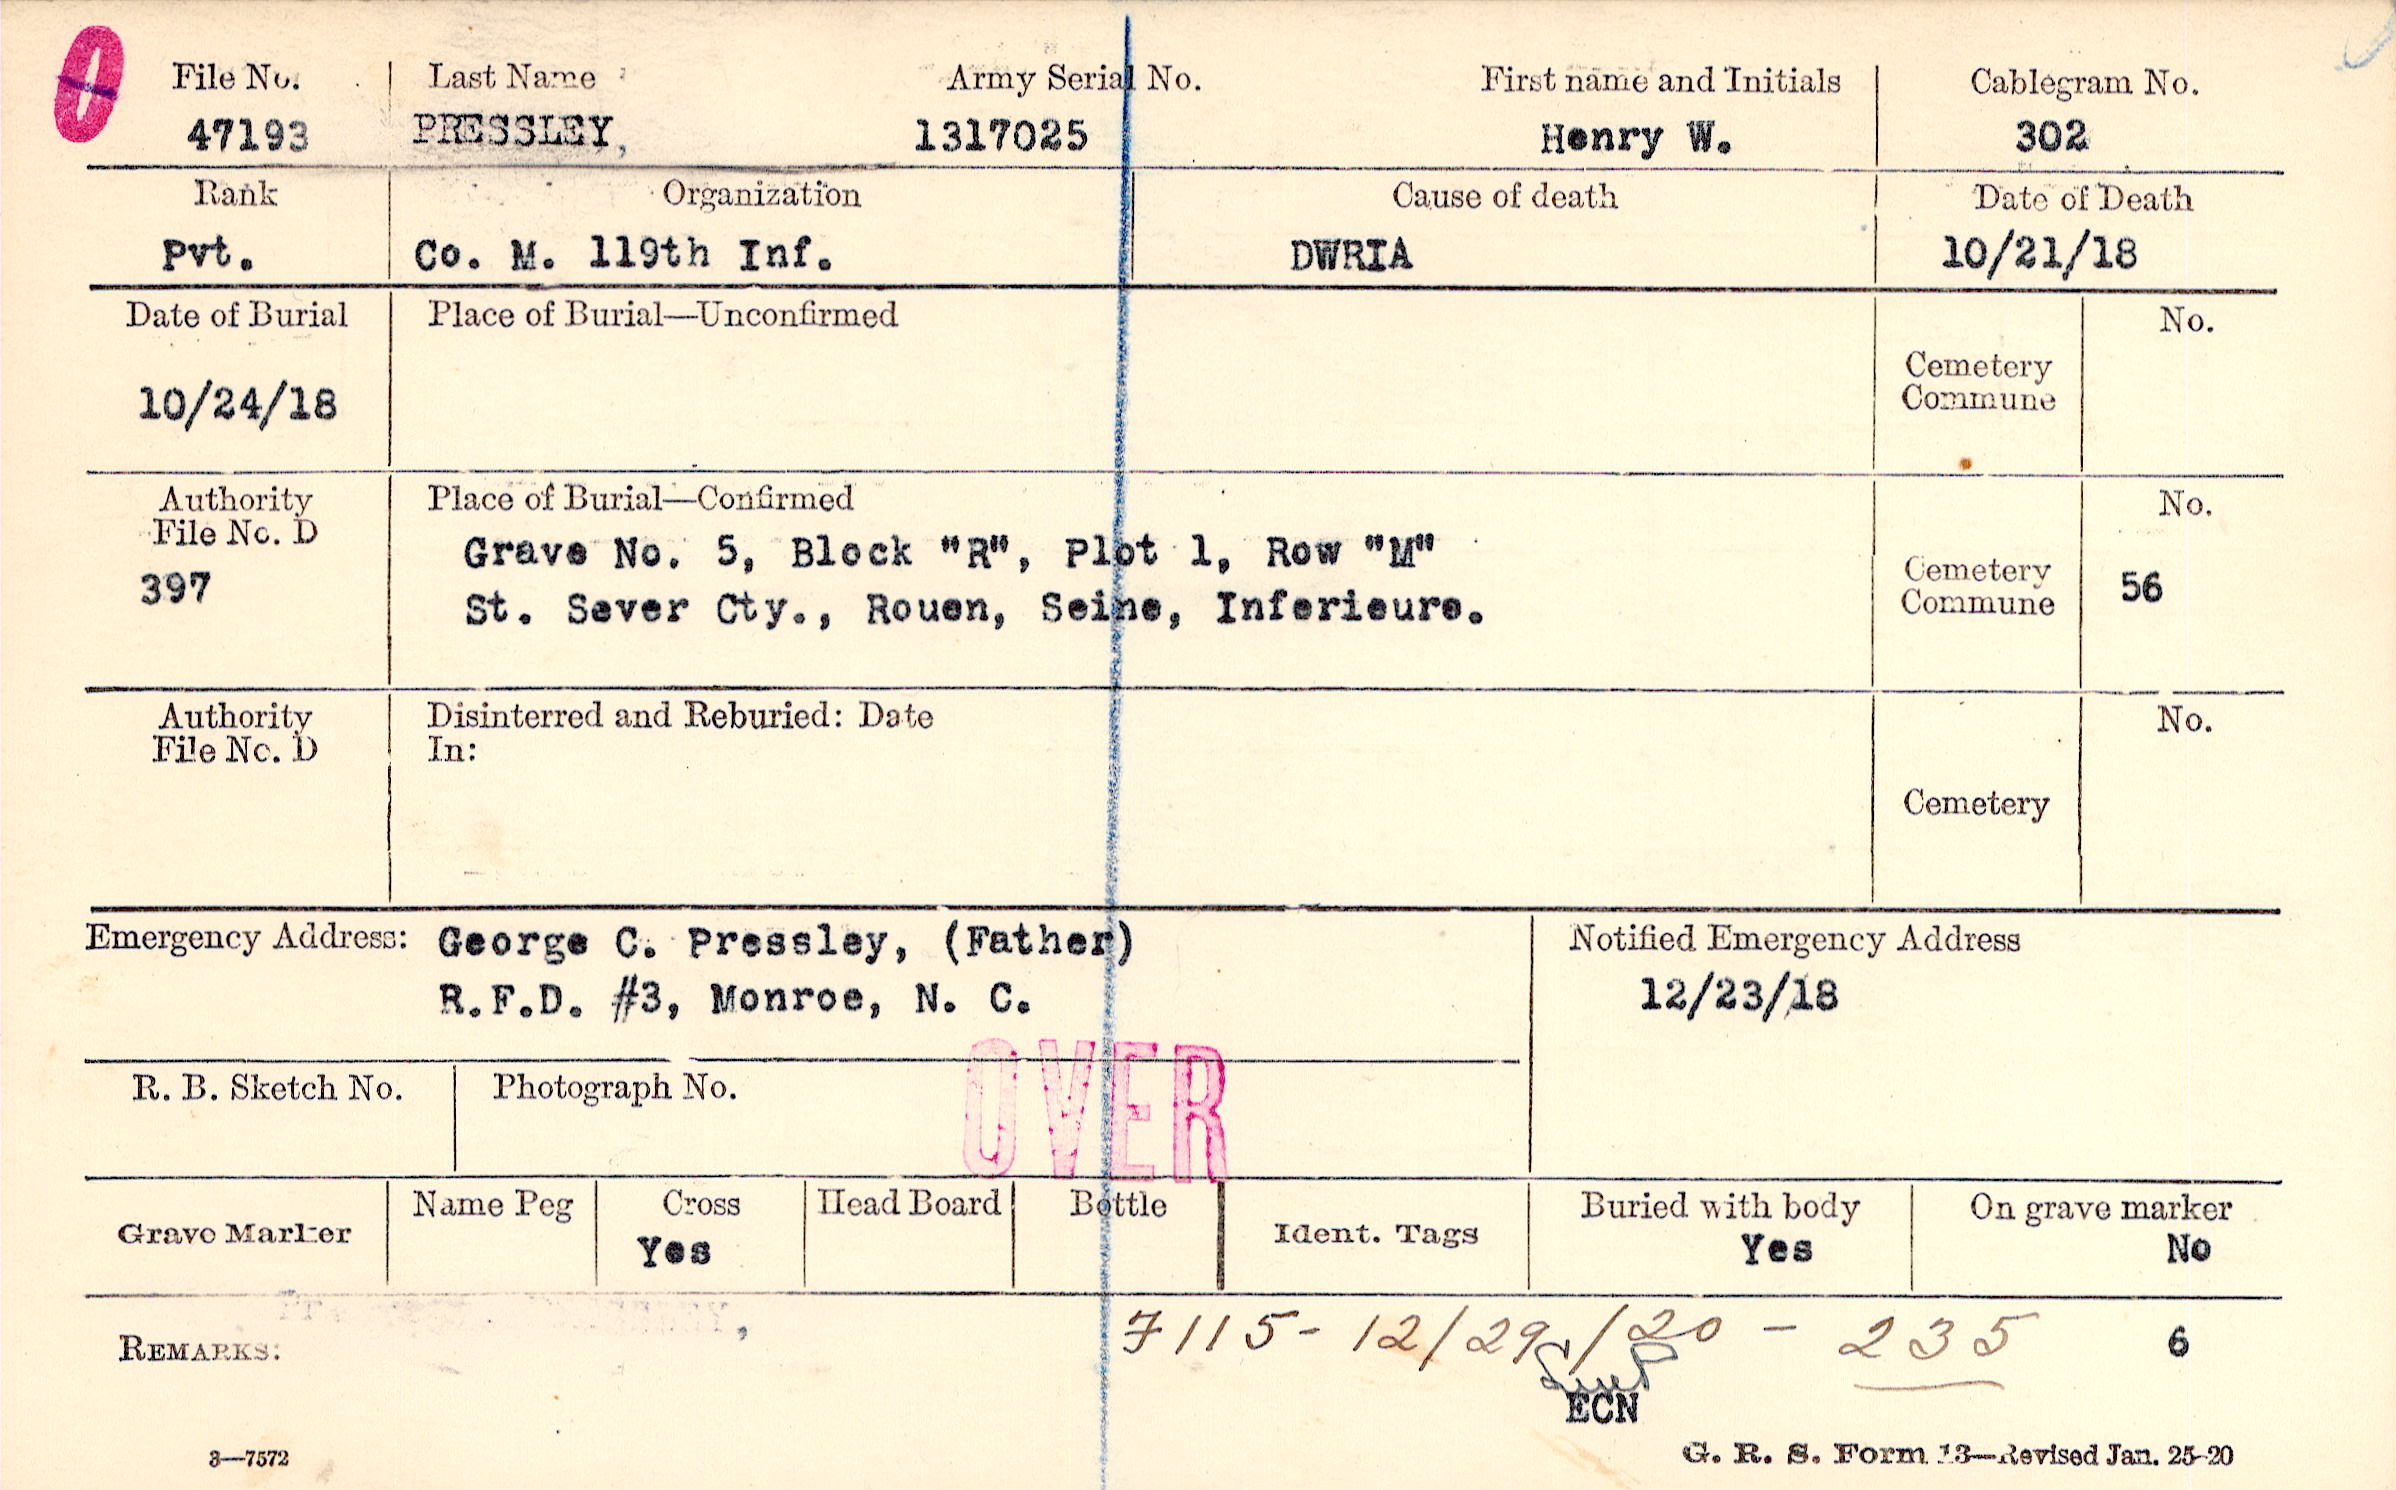 0
File No. Last Name Army Serial No. First name and Initials Cablegram No.
47193 PRESSLEY, 1317025 Henry W. 302
Rank Organization Cause of death Date of Death
Pvt. Co. M. 119th Inf. DWRIA 10/21/18
Date of Burial Place of Burial—Unconfirmed No.
Cemetery
Commune
10/24/18
Authority Place of Burial—Confirmed No.
File No. D
Grave No. 5, Block "R", Plot 1, Row "M"
397 Cemetery
Commune 56
St. Sever Cty., Rouen, Seine, Inferieure.
Authority Disinterred and Reburied: Date No.
File No. D In:
Cemetery
Emergency Address: George C. Pressley, (Father) Notified Emergency Address
R.F.D. #3, Monroe, N. C. 12/23/18
OVER
R. B. Sketch No. Photograph No.
Grave Marker Name Peg Cross Head Board Bottle Ident. Tags Buried with body On grave marker
Yes Yes No
REMARKS: 7115- 12/29/20 - 235 6
ECN
3—7572 G. R. S. Form 13—Revised Jan. 25-20